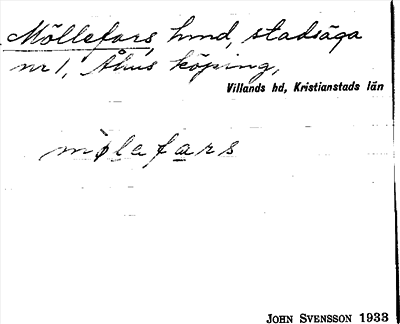 Möllefars, hmd, stadsäga
nr 1, Åhus köping,
Villands hd, Kristianstads län
mølafars
JOHN SVENSSON 1933